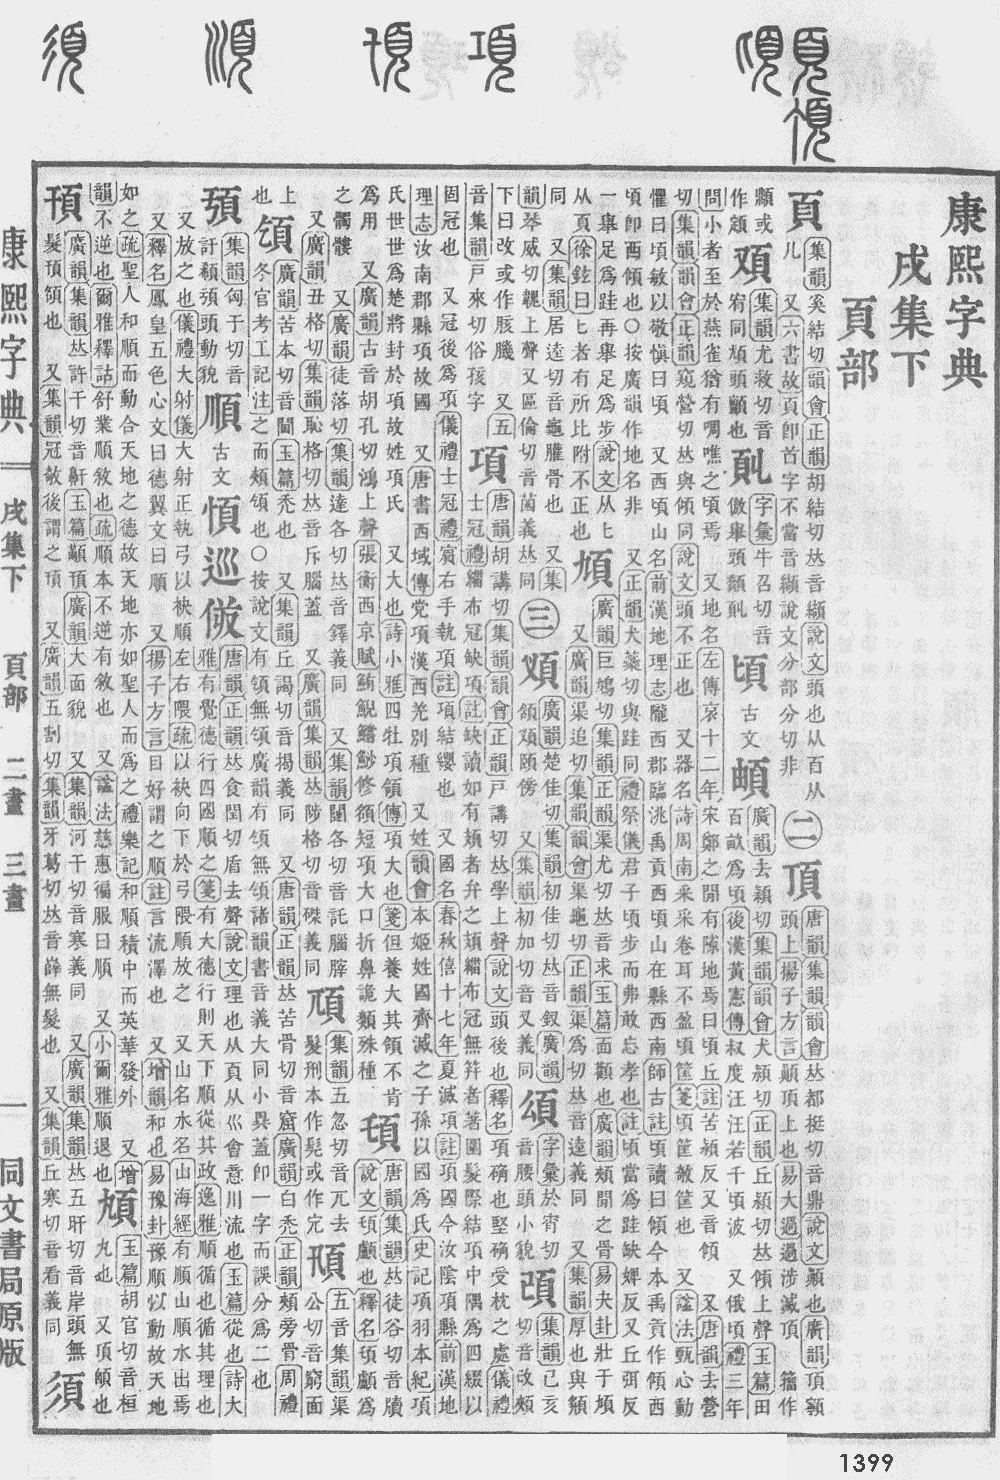 康熙字典
戌集下
頁部
頁 集韻奚結切韻會正韻胡結切𠀤音纈說文頭也从𦣻从儿 又六書故頁卽首字不當音纈說文分部分切非 二 頂 唐韻集韻韻會𠀤都挺切音鼎說文顚也廣韻頂𩕳頭上揚子方言顚頂上也易大過過涉滅頂 籀作
顚或作顁 集韻尤救切音宥同頄頭顫也 字彙牛召切音傲舉頭 頃 古文 廣韻去潁切集韻韻會犬潁切正韻丘潁切𠀤傾上聲玉篇田百畝爲頃後漢黃憲傳叔度汪汪若千頃波 又俄頃禮三年
問小者至於燕雀猶有啁噍之頃焉 又地名左傳哀十二年宋鄭之閒有隙地焉曰頃丘註苦潁反又音傾 又唐韻去營
切集韻韻會正韻窺營切𠀤與傾同說文頭不正也 又器名詩周南采采卷耳不盈頃筐箋頃筐畚筐也 又諡法甄心動
懼曰頃敏以敬愼曰頃 又西頃山名前漢地理志隴西郡臨洮禹貢西頃山在縣西南師古註頃讀曰傾今本禹貢作傾西
頃卽西傾也○按廣韻作地名非 又正韻犬蘂切與跬同禮祭儀君子頃步而弗敢忘孝也註頃當爲跬缺婢反又丘弭反
一舉足爲跬再舉足爲步說文从匕从頁徐鉉曰匕者有所比附不正也 頄 廣韻巨鳩切集韻正韻渠尤切𠀤音求玉篇面顴也廣韻頰閒之骨易夬卦壯于頄 又廣韻渠追切集韻韻會渠龜切正韻渠爲切𠀤音逵義同 又集韻厚也與頯
同 又集韻居逵切音龜臞骨也 又集韻琴威切 上聲又區倫切音囷義𠀤同 三 廣韻楚佳切集韻初佳切𠀤音釵廣韻 頤傍 又集韻初加切音叉義同 字彙於宵切音腰頭小貌 集韻己亥切音改頰
下曰改或作胲 又五音集韻戸來切俗孩字 項 唐韻胡講切集韻韻會正韻戸講切𠀤學上聲說文頭後也釋名項确也堅确受枕之處儀禮士冠禮緇布冠缺項註缺讀如有頍者弁之頍緇布冠無笄者著圍髮際結項中隅爲四綴以
固冠也 又冠後爲項儀禮士冠禮賓右手執項註項結纓也 又國名春秋僖十七年夏滅項註項國今汝陰項縣前漢地
理志汝南郡縣項故國 又唐書西域傳党項漢西羌別種 又姓韻會本姬姓國齊滅之子孫以國爲氏史記項羽本紀項
氏世世爲楚將封於項故姓項氏 又大也詩小雅四牡項領傳項大也箋但養大其領不肯
爲用 又廣韻古音胡孔切鴻上聲張衡西京賦鮪鯢鱨魦修額短項大口折鼻詭類殊種 𩑒 唐韻集韻𠀤徒谷切音牘說文𩑒顱也釋名𩑒顱爲
之髑髏 又廣韻徒落切集韻達各切𠀤音鐸義同 又集韻闥各切音託腦膟
又廣韻丑格切集韻恥格切𠀤音斥腦蓋 又廣韻集韻𠀤陟格切音磔義同 集韻五忽切音兀去髮刑本作髡或作 五音集韻渠公切音窮面
上也 廣韻苦本切音閫玉篇禿也 又集韻丘謁切音揭義同 又唐韻正韻𠀤苦骨切音窟廣韻白禿正韻頰旁骨周禮冬官考工記注之而頰 也○按說文有 無 廣韻有 無 諸韻書音義大同小異蓋卽一字而誤分爲二也
集韻匈于切音訏 頭動貌 順 古文 巡 唐韻正韻𠀤食閏切盾去聲說文理也从頁从巛會意川流也玉篇從也詩大雅有覺德行四國順之箋有大德行則天下順從其政逸雅順循也循其理也
又放之也儀禮大射儀大射正執弓以袂順左右隈疏以袂向下於弓隈順放之 又山名水名山海經有順山順水出焉
又釋名鳳皇五色心文曰德翼文曰順 又揚子方言曰好謂之順註言流澤也 又增韻和也易豫卦豫順以動故天地
如之疏聖人和順而動合天地之德故天地亦如聖人而爲之禮樂記和順積中而英華發外 又增
韻不逆也爾雅釋詁舒業順敘也疏順本不逆有敘也 又諡法慈惠徧服曰順 又小爾雅順退也 玉篇胡官切音桓丸也 又項䪴也
頇 廣韻集韻𠀤許干切音鼾玉篇顢頇廣韻大面貌 又集韻河干切音寒義同 又廣韻集韻𠀤五旰切音岸頭無髮頇頟也 又集韻冠攲後謂之頇 又廣韻五割切集韻牙葛切𠀤音𡾲無髮也 又集韻丘寒切音看義同 須
康熙字典 戌集下 頁部 二畫 三畫 一 同文書局原版
1399